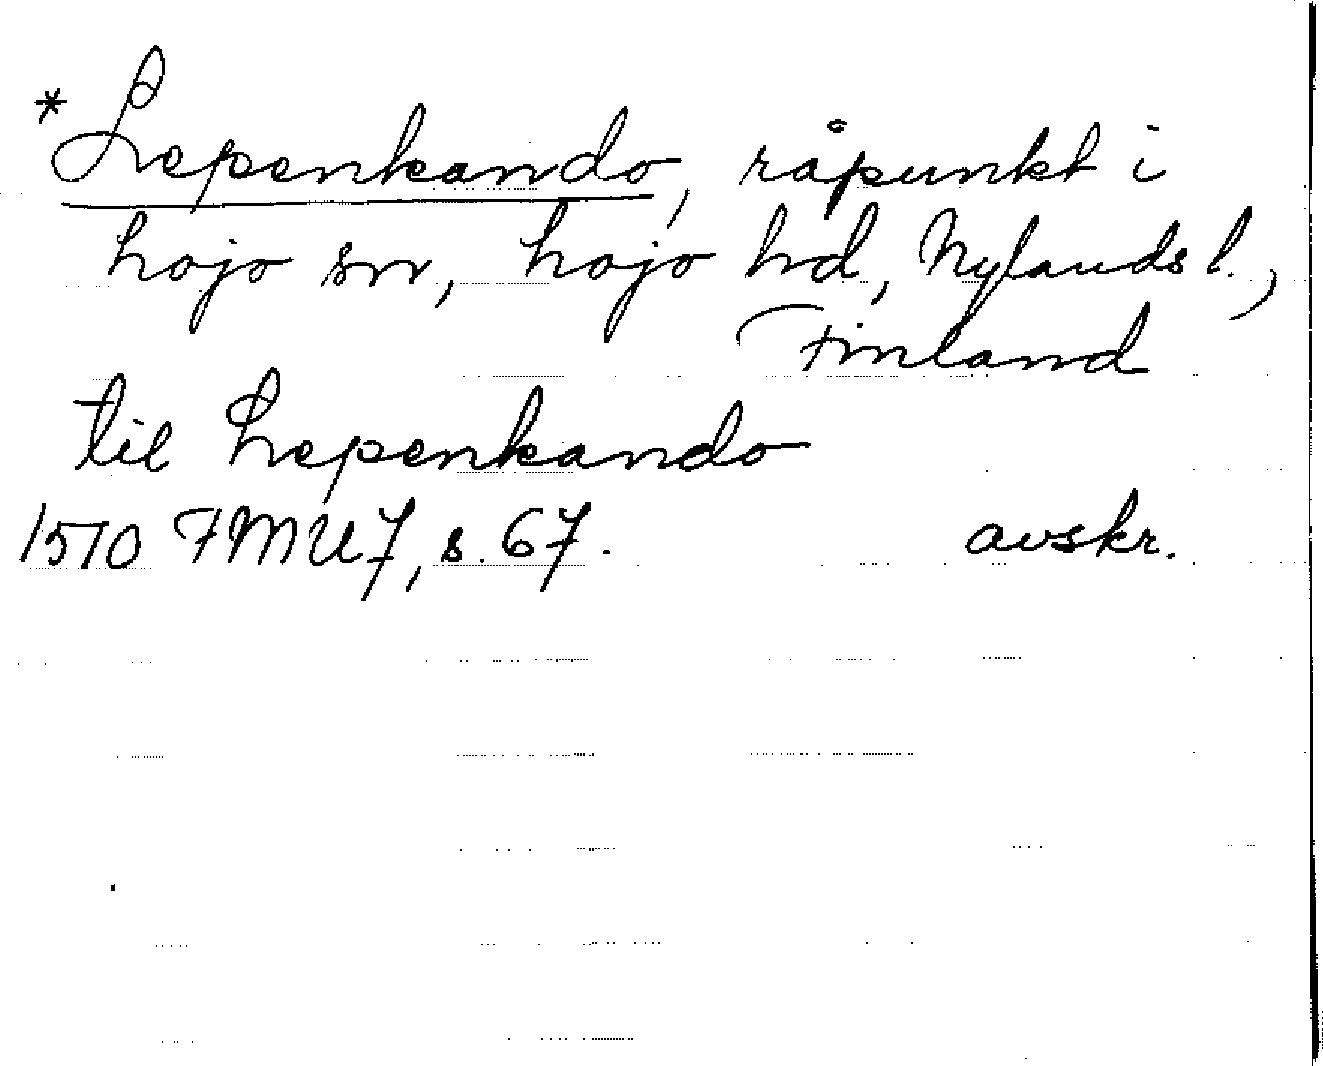 *Lepenkando, råpunkt i
Lojo sn, Lojo hd, Nylands l.,
Finland
til Lepenkando
1510 FMU 7, s. 67. avskr.